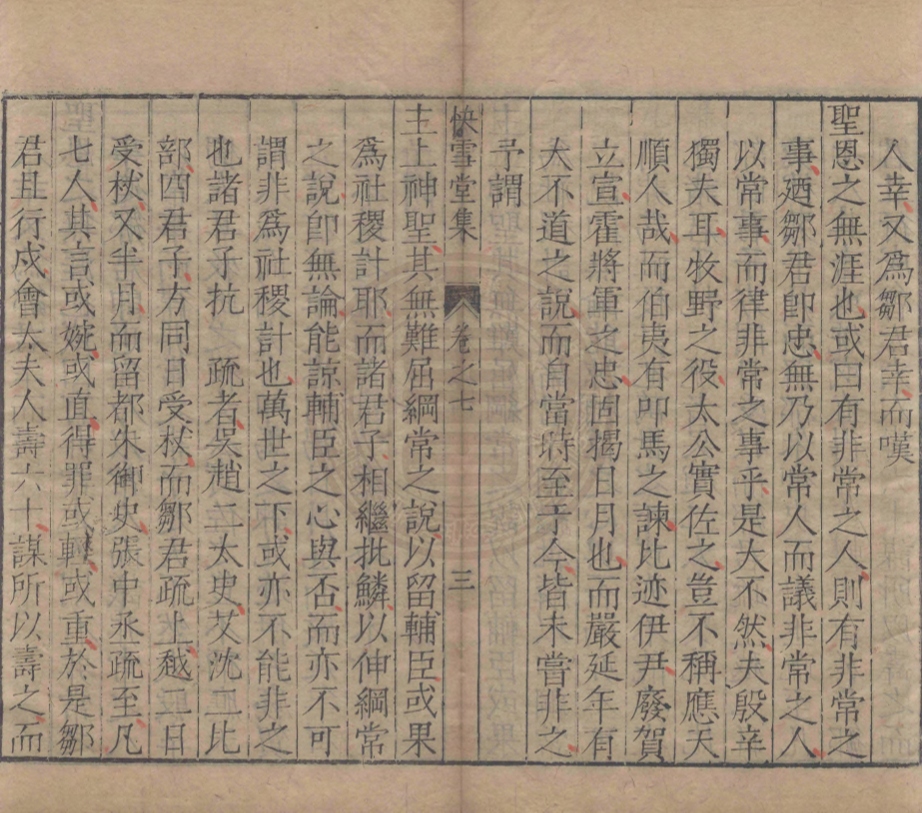 人幸又爲鄒君幸而嘆
聖恩之無涯也或曰有非常之人則有非常之
事廼鄒君卽忠無乃以常人而議非常之人
以常事而律非常之事乎是大不然夫殷辛
獨夫耳牧野之役太公實佐之豈不稱應天
順人哉而伯夷有叩馬之諫比迹伊尹廢賀
立宣霍將軍之忠固揭日月也而嚴延年有
大不道之說而自當時至于今皆未嘗非之
予謂
快雪堂集 卷之七 三
主上神聖其無難屈綱常之說以留輔臣或果
爲社稷計耶而諸君子相繼批鱗以伸綱常
之說卽無論能諒輔臣之心與否而亦不可
謂非爲社稷計也萬世之下或亦不能非之
也諸君子抗 疏者吳趙二太史艾沈二比
部四君子方同日受杖而鄒君疏上越二日
受杖又半月而留都朱御史張中丞疏至凡
七人其言或婉或直得罪或輕或重於是鄒
君且行戍會太夫人壽六十謀所以壽之而